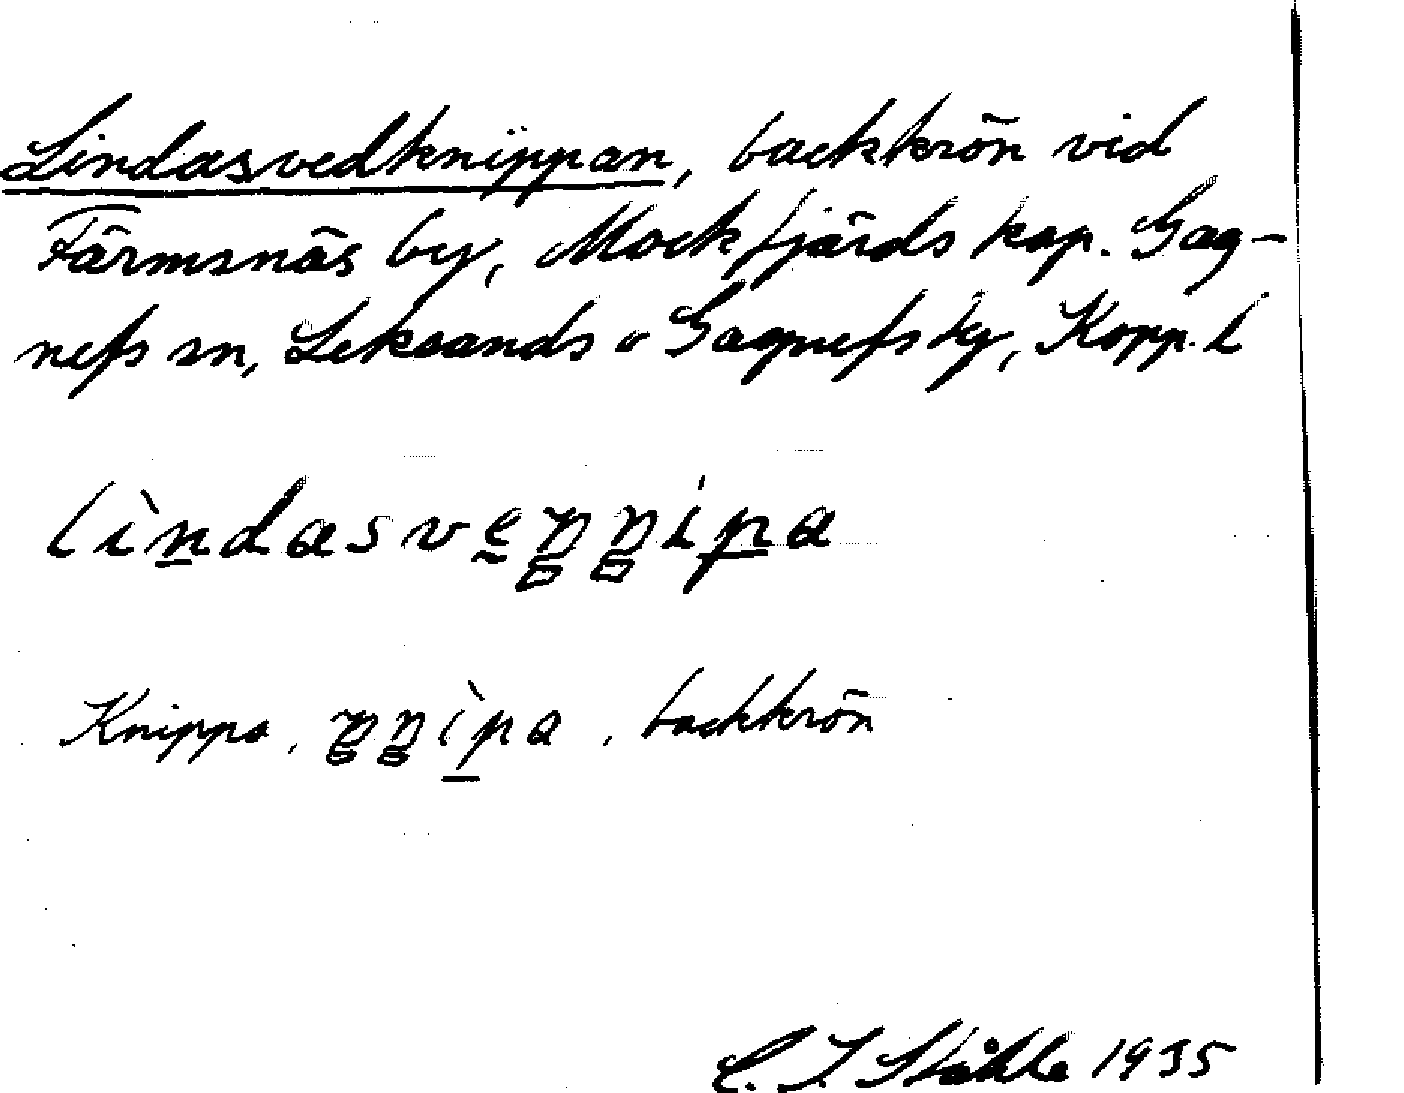 Lindasvedknippan, backkrön vid
Färmsnäs by, Mockfjärds kap. Gag-
nefs sn, Leksands o Gagnefs tg, Kopp. l
Knippa, backkrön
C. I. Ståhle 1935